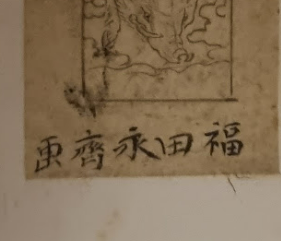 福田永齊画